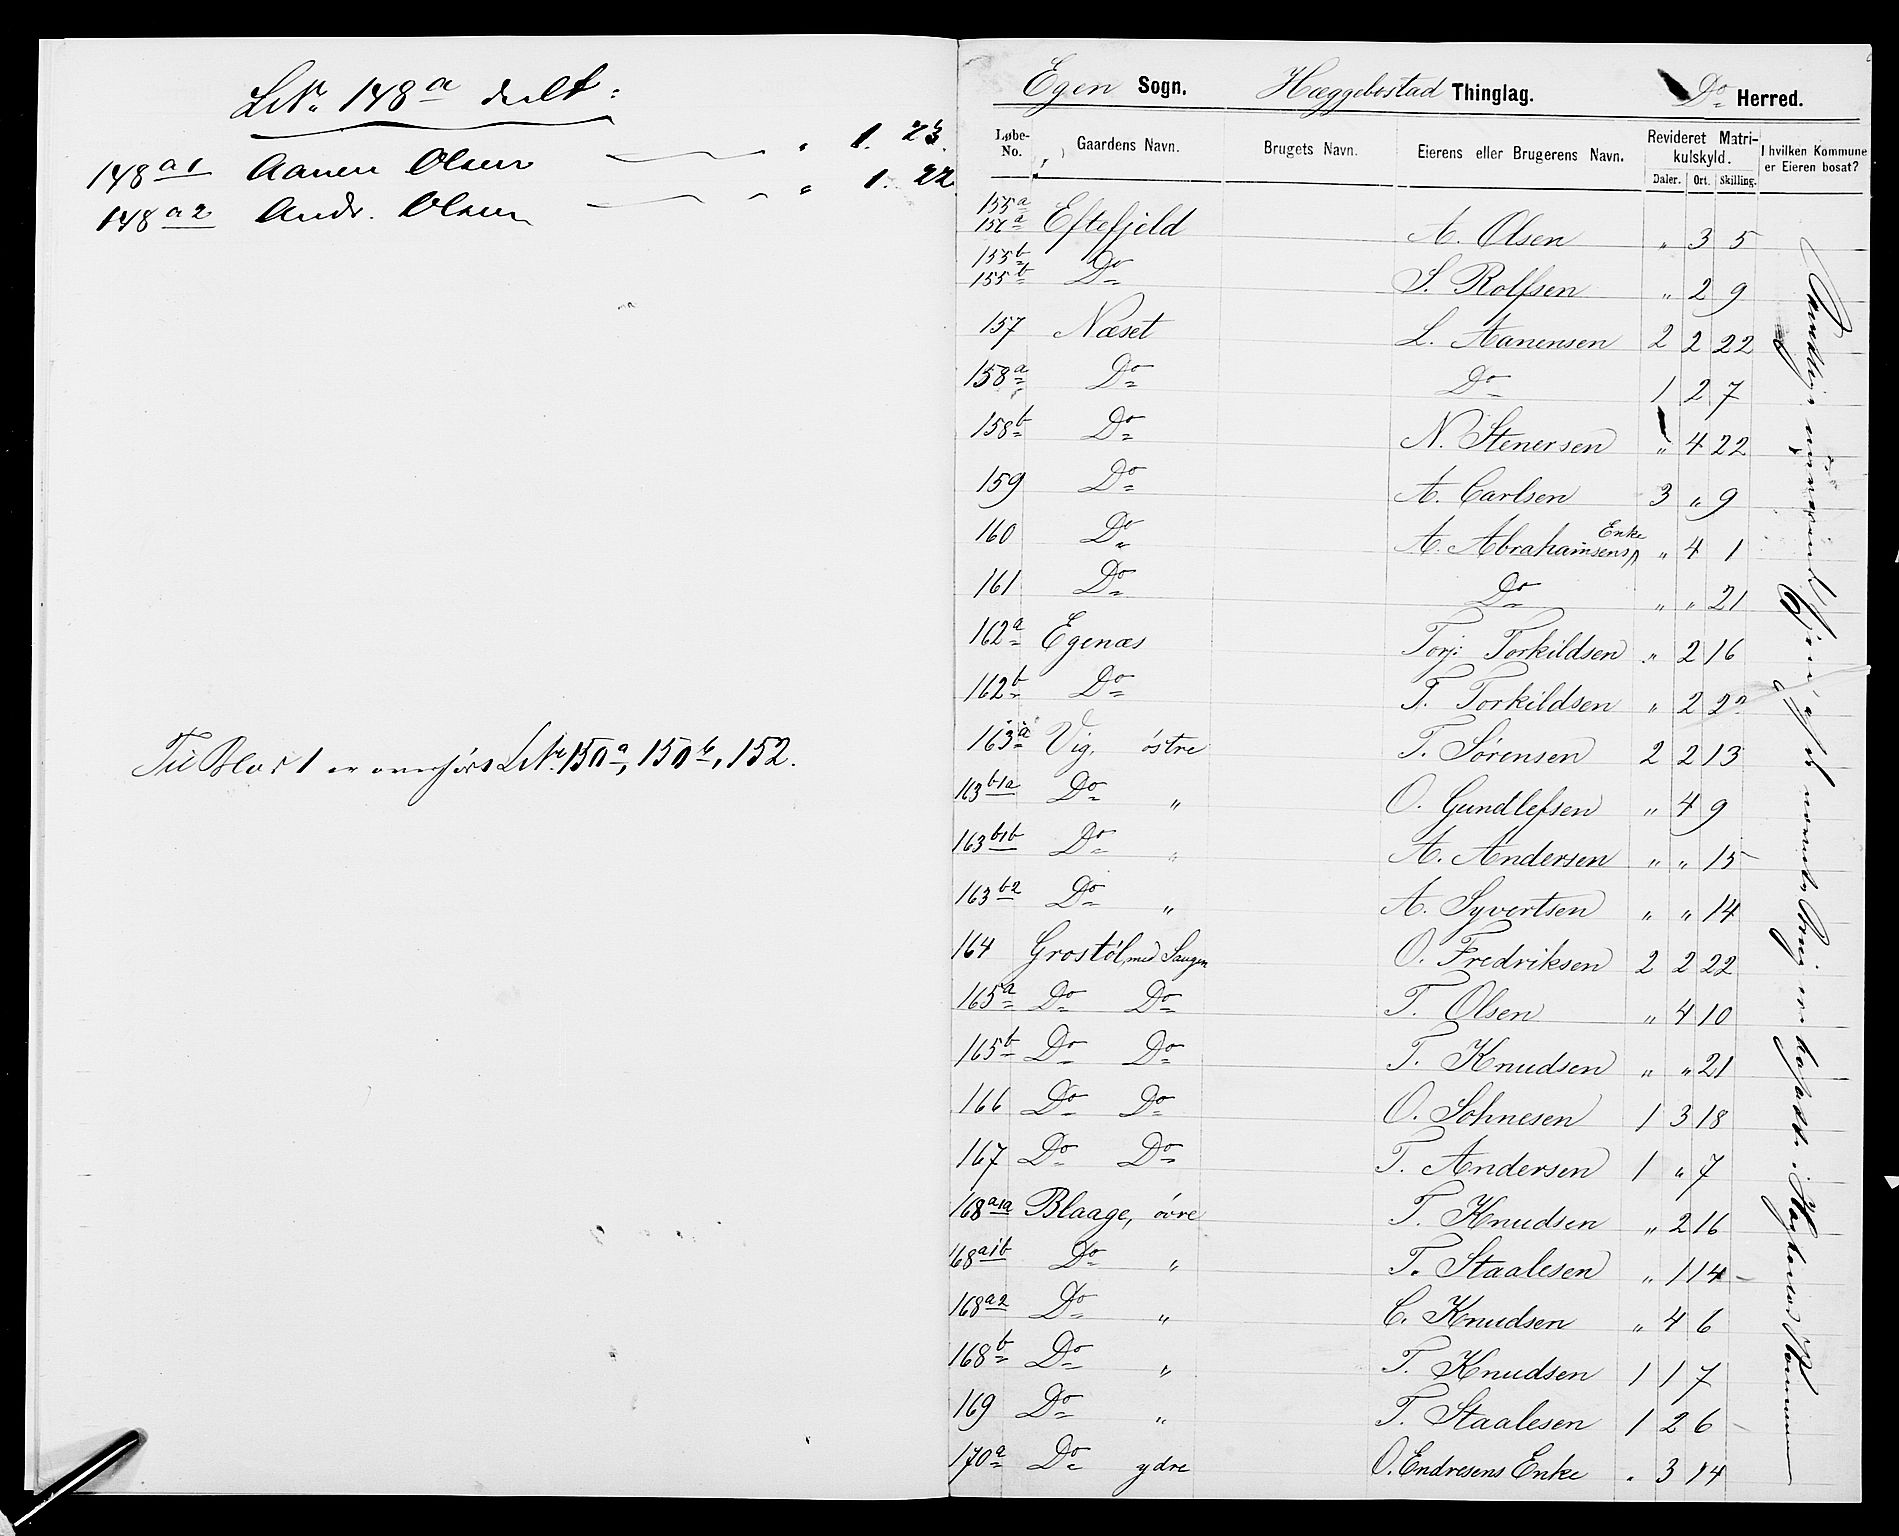 LNr. 148a delt:
148a1 Aanen Olsen " 1. 23.
148a2 Andr. Olsen " 1. 22
Til Blad 1 er overført LNr. 150a, 150b, 152.
Egen Sogn. Hæggebostad Thinglag. Do Herred.
Løbe-No. Gaardens Navn. Brugets Navn. Eierens eller Brugerens Navn. Revideret Matrikulskyld. I hvilken Kommune er Eieren bosat?
Daler. Ort. Skilling.
155a
156a Eftefjeld A. Olsen " 3 5
155b
155b Do S. Rolfsen " 2 9
157 Næset L. Aanensen 2 2 22
158a Do Do 1 2 7
158b Do N. Stenersen " 4 22
159 Do A. Carlsen 3 " 9
160 Do A. Abrahamsens Enke " 4 1
161 Do Do " " 21
162a Egenæs Torj: Torkildsen " 2 16
162b Do T. Torkildsen " 2 22
163a Vig, østre T. Sørensen 2 2 13
163b1a Do " O. Gundlefsen " 4 9
163b1b Do " A. Andersen " " 15
163b2 Do " A. Syvertsen " " 14
164 Grostøl, med Saugen O. Fredriksen 2 2 22
165a Do Do T. Olsen " 4 10
165b Do Do T. Knudsen " " 21
166 Do Do O. Sohnesen 1 3 18
167 Do Do T. Andersen 1 " 7
168a1a Blaage, øvre T. Knudsen " 2 16
168a1b Do " T. Staalesen " 1 14
168a2 Do " C. Knudsen " 4 6
168b Do " T. Knudsen 1 1 7
169 Do " T. Staalesen 1 2 6
170a Do ydre O. Endresens Enke " 3 14